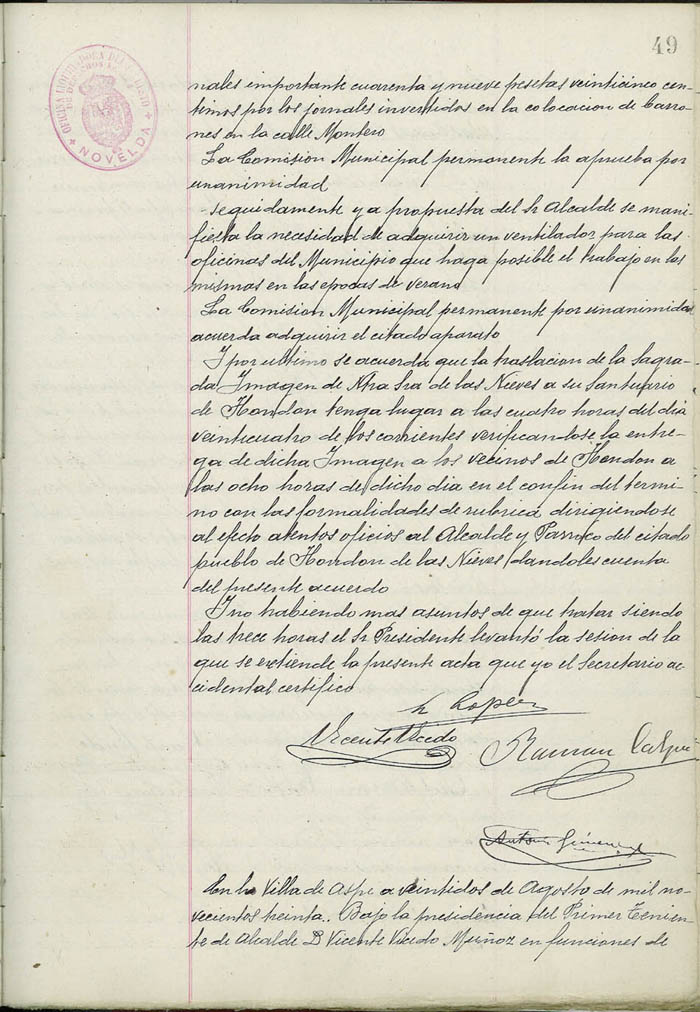 49
OFICINA LIQUIDADORA DEL
NOVELDA
nales importante cuarenta y nueve pesetas veinticinco cen-
timos por los jornales invertidos en la colocacion de Carro-
nes en la calle Montero
La Comision Municipal permanente la aprueba por
unanimidad
Seguidamente y a propuesta del Sr Alcalde se mani-
fiesta la necesidad de adquirir un ventilador para las
oficinas del Municipio que haga posible el trabajo en las
mismas en las epocas de verano
La Comision Municipal permanente por unanimidad
acuerda adquirir el citado aparato
I por ultimo se acuerda que la traslacion de la Sagra-
da Imagen de Ntra Sra de las Nieves a su Santuario
de Hondon tenga lugar a las cuatro horas del dia
veinticuatro de los corrientes verificandose la entre-
ga de dicha Imagen a los vecinos de Hondon a
las ocho horas de dicho dia en el confin del termi-
no con las formalidades de rubrica dirigiendose
al efecto atentos oficios al Alcalde y Parroco del citado
pueblo de Hondon de las Nieves dandoles cuenta
del presente acuerdo
I no habiendo mas asuntos de que tratar siendo
las trece horas el Sr Presidente levantó la sesion de la
que se extiende la presente acta que yo el Secretario ac-
cidental certifico
Lopez
Vicente Vicedo
Ramon
Antonio Gimenez
En la Villa de Aspe a veintidos de Agosto de mil no-
vecientos treinta. Bajo la presidencia del Primer Tenien-
te de Alcalde D Vicente Vicedo Muñoz en funciones de